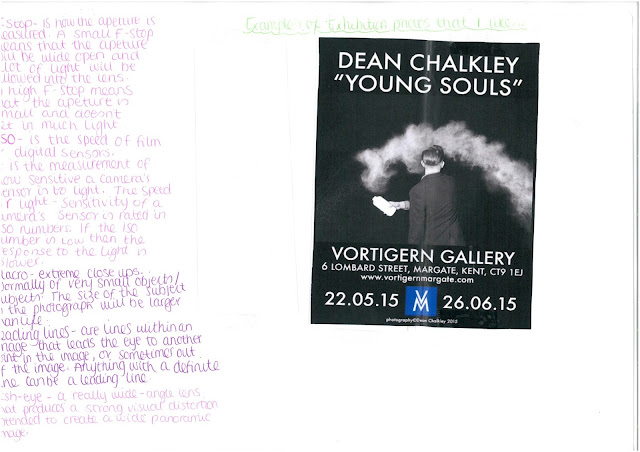 Stop- is how the aperture is
easured. A small F-stop
eans that the aperture
ill be wide open and
lot of light will be
llowed into the lens.
high F-stop means
at the aperture is
mall and doesnt
et in much light
SO- is the speed of film
digital sensors.
is the measurement of
ow sensitive a camera's
ensor is to light. The speed
r light - sensitivity of a
amera's sensor is rated in
so numbers. If the iso
umber is low then the
esponse to the light is
lower.
acro- extreme close ups.
ormally of very small objects/
ubjects. The size of the subject
the photograph will be larger
han life.
eading lines- are lines within an
mage that leads the eye to another
oint in the image, or sometimes out
f the image. Anything with a definite
ine can be a leading line
ish-eye - a really wide-angle lens
hat produces a strong visual distortion
ntended to create a wide panoramic
mage.
Examples of Exhibition photos that I like...
DEAN CHALKLEY
"YOUNG SOULS"
VORTIGERN GALLERY
6 LOMBARD STREET, MARGATE, KENT, CT9 1EJ
www.vortigernmargate.com
22.05.15 VM 26.06.15
photography©Dean Chalkley 2015